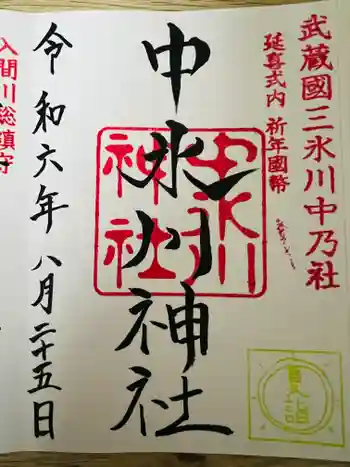 武蔵國三氷川中乃社
延喜式内 祈年國幣
中氷川神社
中氷川
神社
夏詣
令和六年 八月二十五日
入間川総鎮守